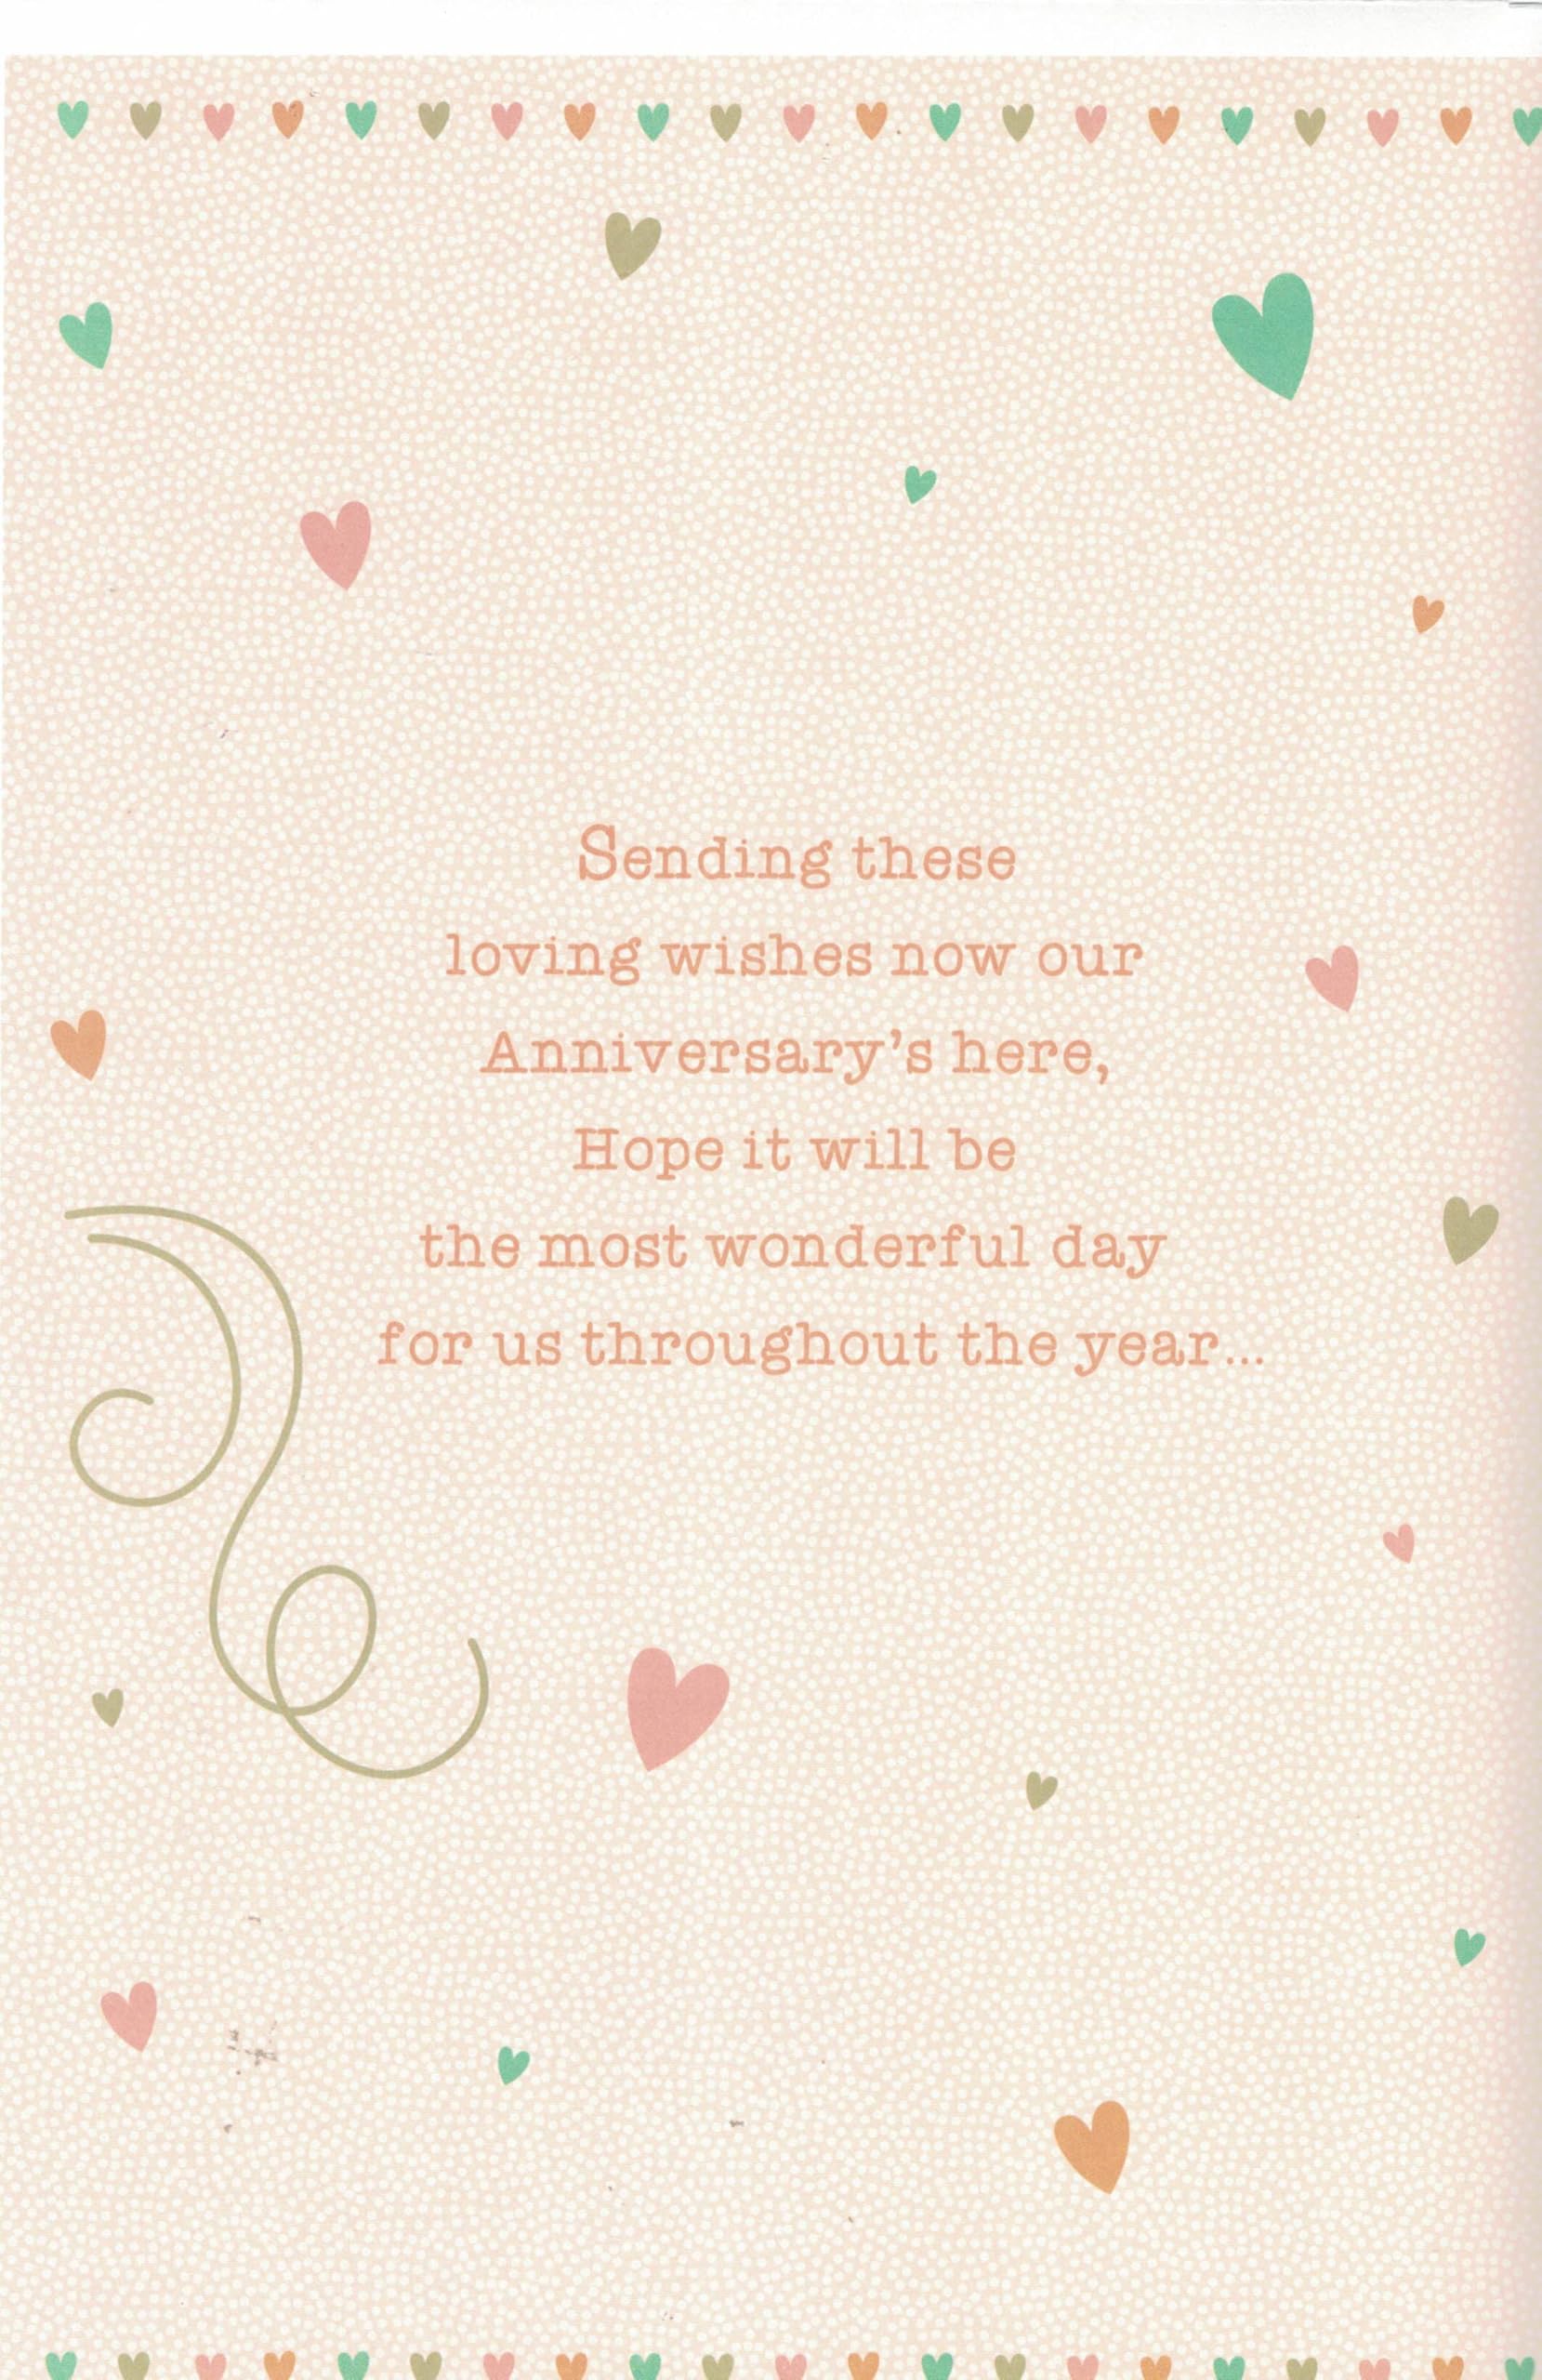 Sending these
loving wishes now our
Anniversary's here,
Hope it will be
the most wonderful day
for us throughout the year...